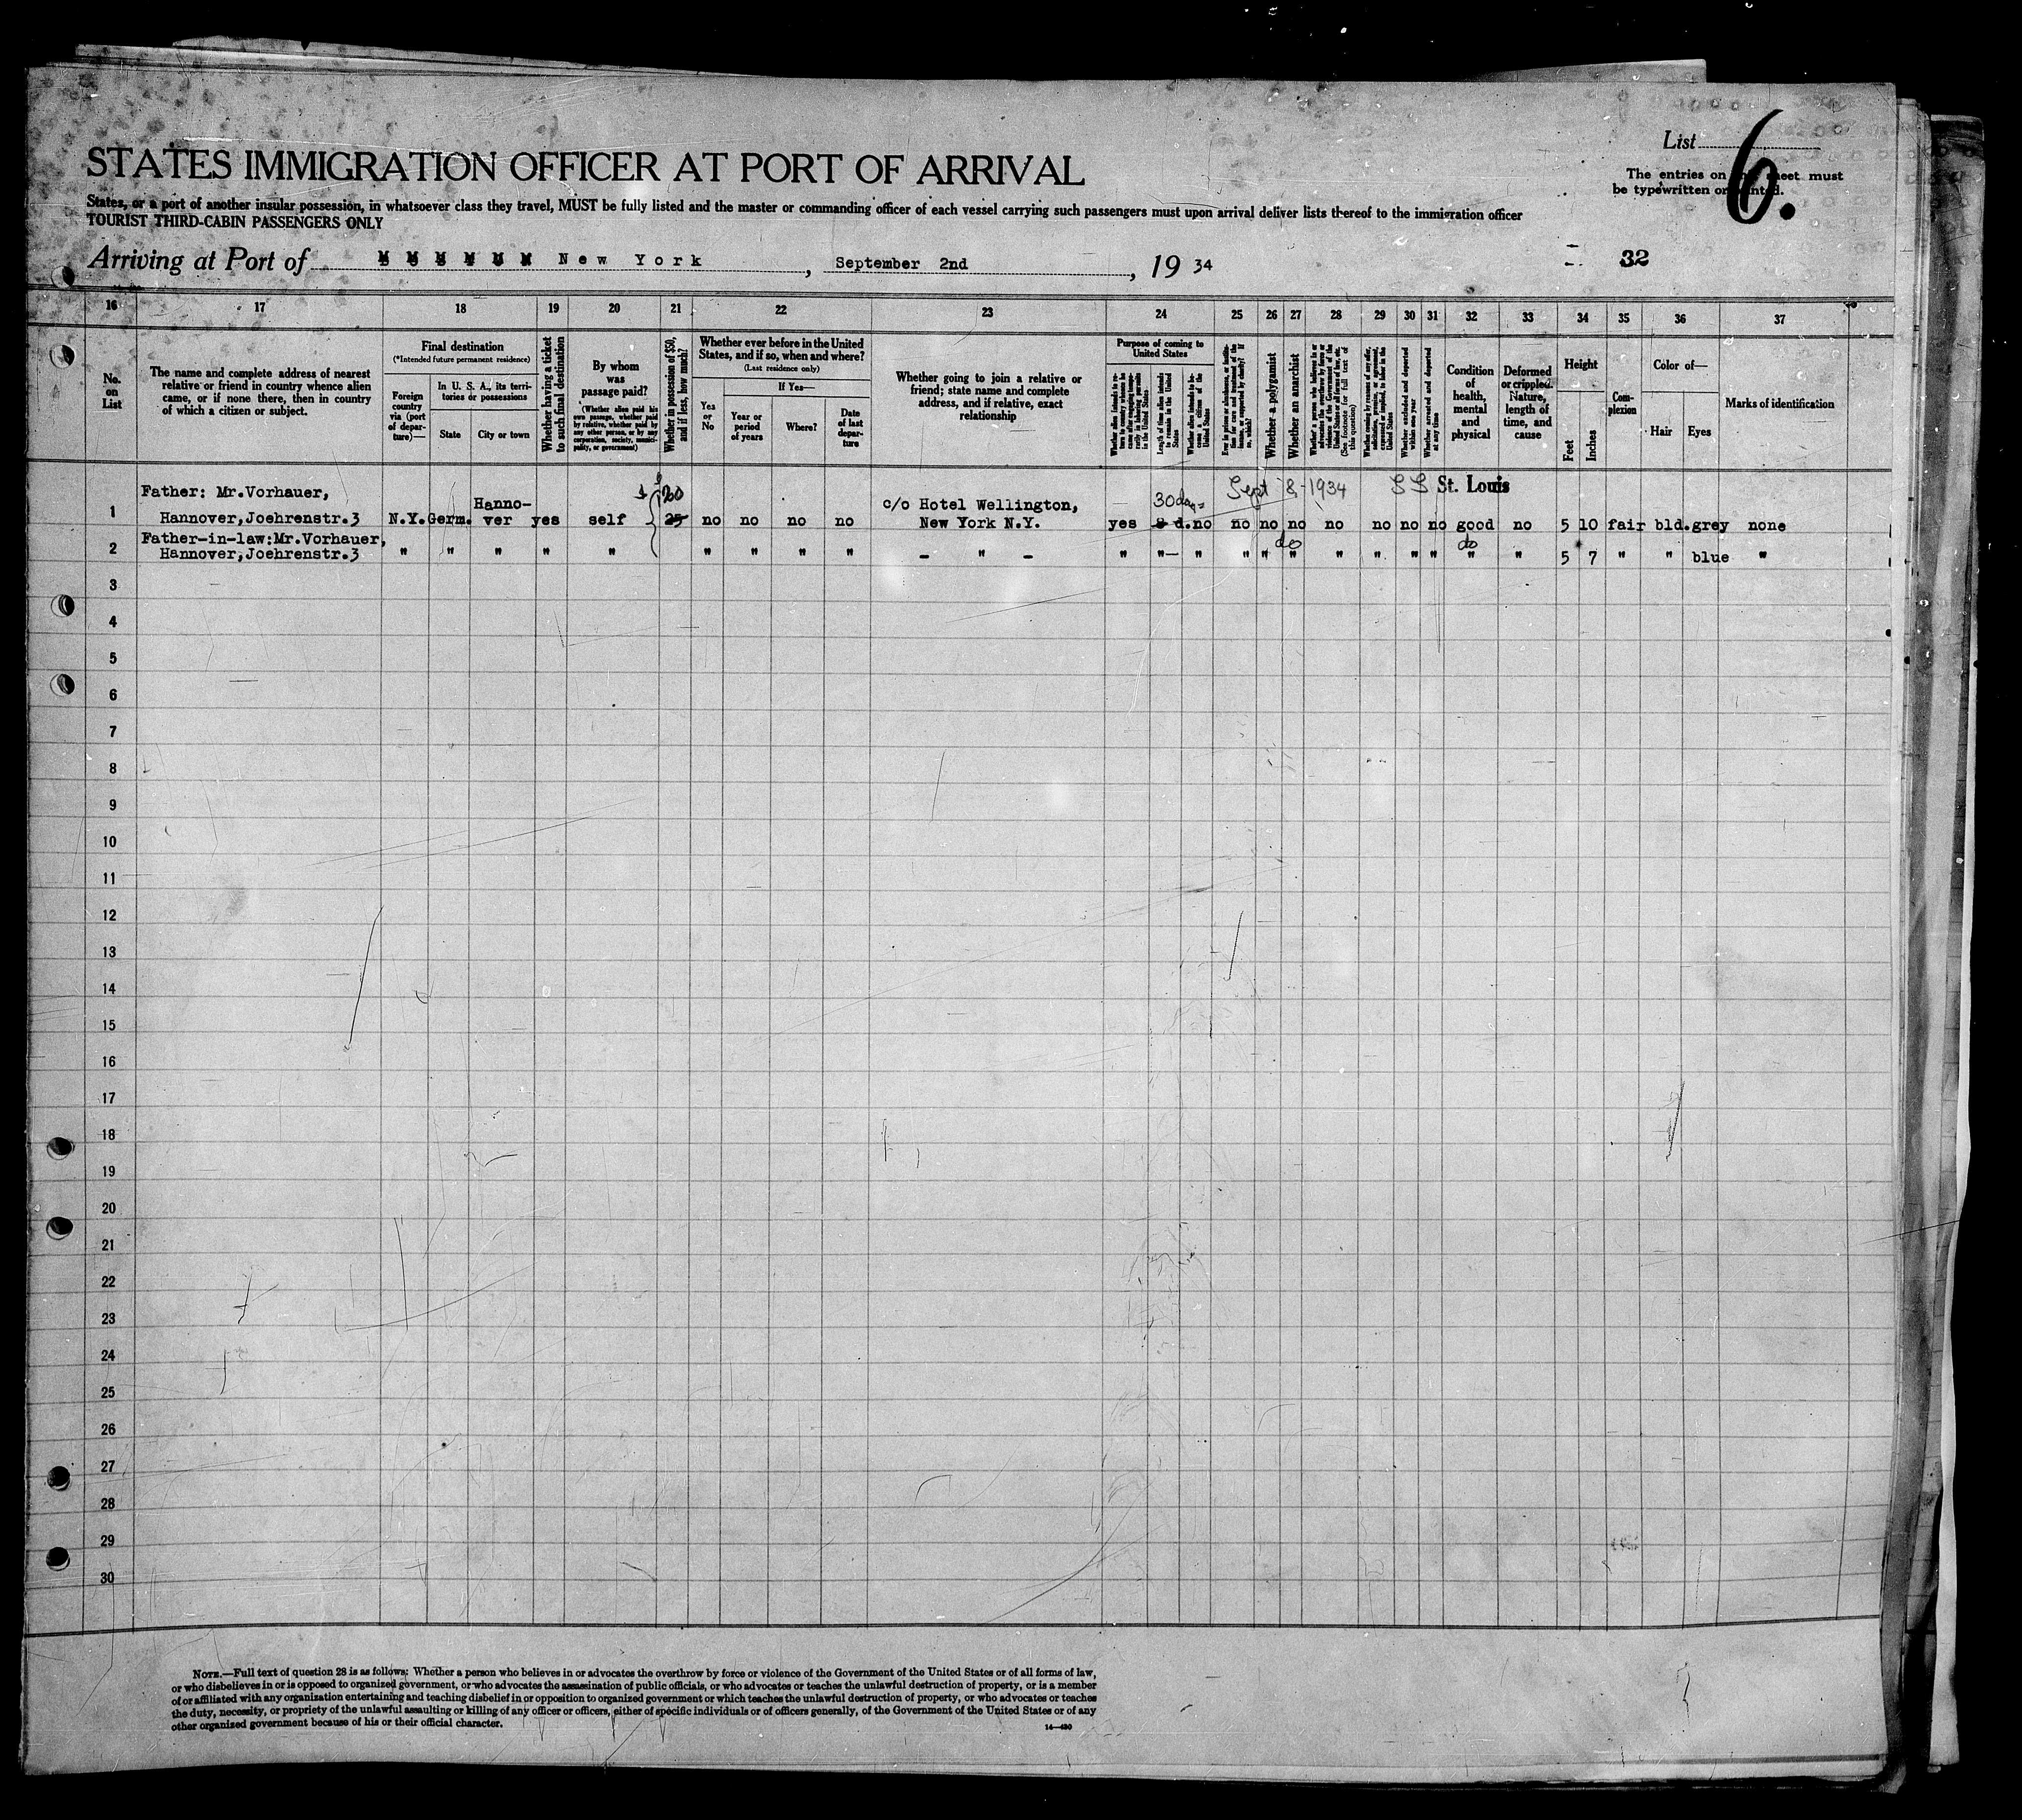 List 6.
STATES IMMIGRATION OFFICER AT PORT OF ARRIVAL
The entries on this sheet must
be typewritten or printed.
States, or a port of another insular possession, in whatsoever class they travel, MUST be fully listed and the master or commanding officer of each vessel carrying such passengers must upon arrival deliver lists thereof to the immigration officer
TOURIST THIRD-CABIN PASSENGERS ONLY
Arriving at Port of New York, September 2nd, 19 34
32
16 17 18 19 20 21 22 23 24 25 26 27 28 29 30 31 32 33 34 35 36 37
No.
on
List
The name and complete address of nearest
relative or friend in country whence alien
came, or if none there, then in country
of which a citizen or subject.
Final destination
(*Intended future permanent residence)
Foreign
country
via (port
of depar-
ture)—
In U. S. A., its terri-
tories or possessions
State
City or town
Whether having a ticket
to such final destination
By whom
was
passage paid?
(Whether alien paid his
own passage, whether paid
by relative, whether paid by
any other person, or by any
corporation, society, munici-
pality, or government)
Whether in possession of $50,
and if less, how much?
Whether ever before in the United
States, and if so, when and where?
(Last residence only)
Yes
or
No
If Yes—
Year or
period
of years
Where?
Date
of last
depar-
ture
Whether going to join a relative or
friend; state name and complete
address, and if relative, exact
relationship
Purpose of coming to
United States
Length of time alien intends
to remain in the United
States
Whether a polygamist
Whether an anarchist
Condition
of
health,
mental
and
physical
Deformed
or crippled.
Nature,
length of
time, and
cause
Height
Feet
Inches
Com-
plexion
Color of—
Hair
Eyes
Marks of identification
Father: Mr.Vorhauer, Hanno- $ 120 c/o Hotel Wellington, 30 days Sept 8, 1934 SS St. Louis
1 Hannover,Joehrenstr.3 N.Y. Germ. ver yes self 25 no no no no New York N.Y. yes 8 d. no no no no no no no no good no 5 10 fair bld. grey none
Father-in-law:Mr.Vorhauer, do do
2 Hannover,Joehrenstr.3 " " " " " " " " " - " - " "— " " " " " " " " " " 5 7 " " blue "
3
4
5
6
7
8
9
10
11
12
13
14
15
16
17
18
19
20
21
22
23
24
25
26
27
28
29
30
NOTE.—Full text of question 28 is as follows: Whether a person who believes in or advocates the overthrow by force or violence of the Government of the United States or of all forms of law,
or who disbelieves in or is opposed to organized government, or who advocates the assassination of public officials, or who advocates or teaches the unlawful destruction of property, or is a member
of or affiliated with any organization entertaining and teaching disbelief in or opposition to organized government or which teaches the unlawful destruction of property, or who advocates or teaches
the duty, necessity, or propriety of the unlawful assaulting or killing of any officer or officers, either of specific individuals or of officers generally, of the Government of the United States or of any
other organized government because of his or their official character.
14—430